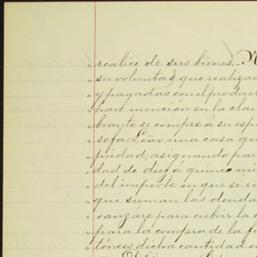 realice de sus bienes.
su voluntad que realizad
y pagadas con el produc
hace mención en la cla
brante se compre á su esp
sefa Leno una casa qu
piedad, asignando par
dad de diez á quince mi
del importe en que se re
que suman las deuda
canzare para cubrir la c
para la compra de la f
tónces dicha cantidad e